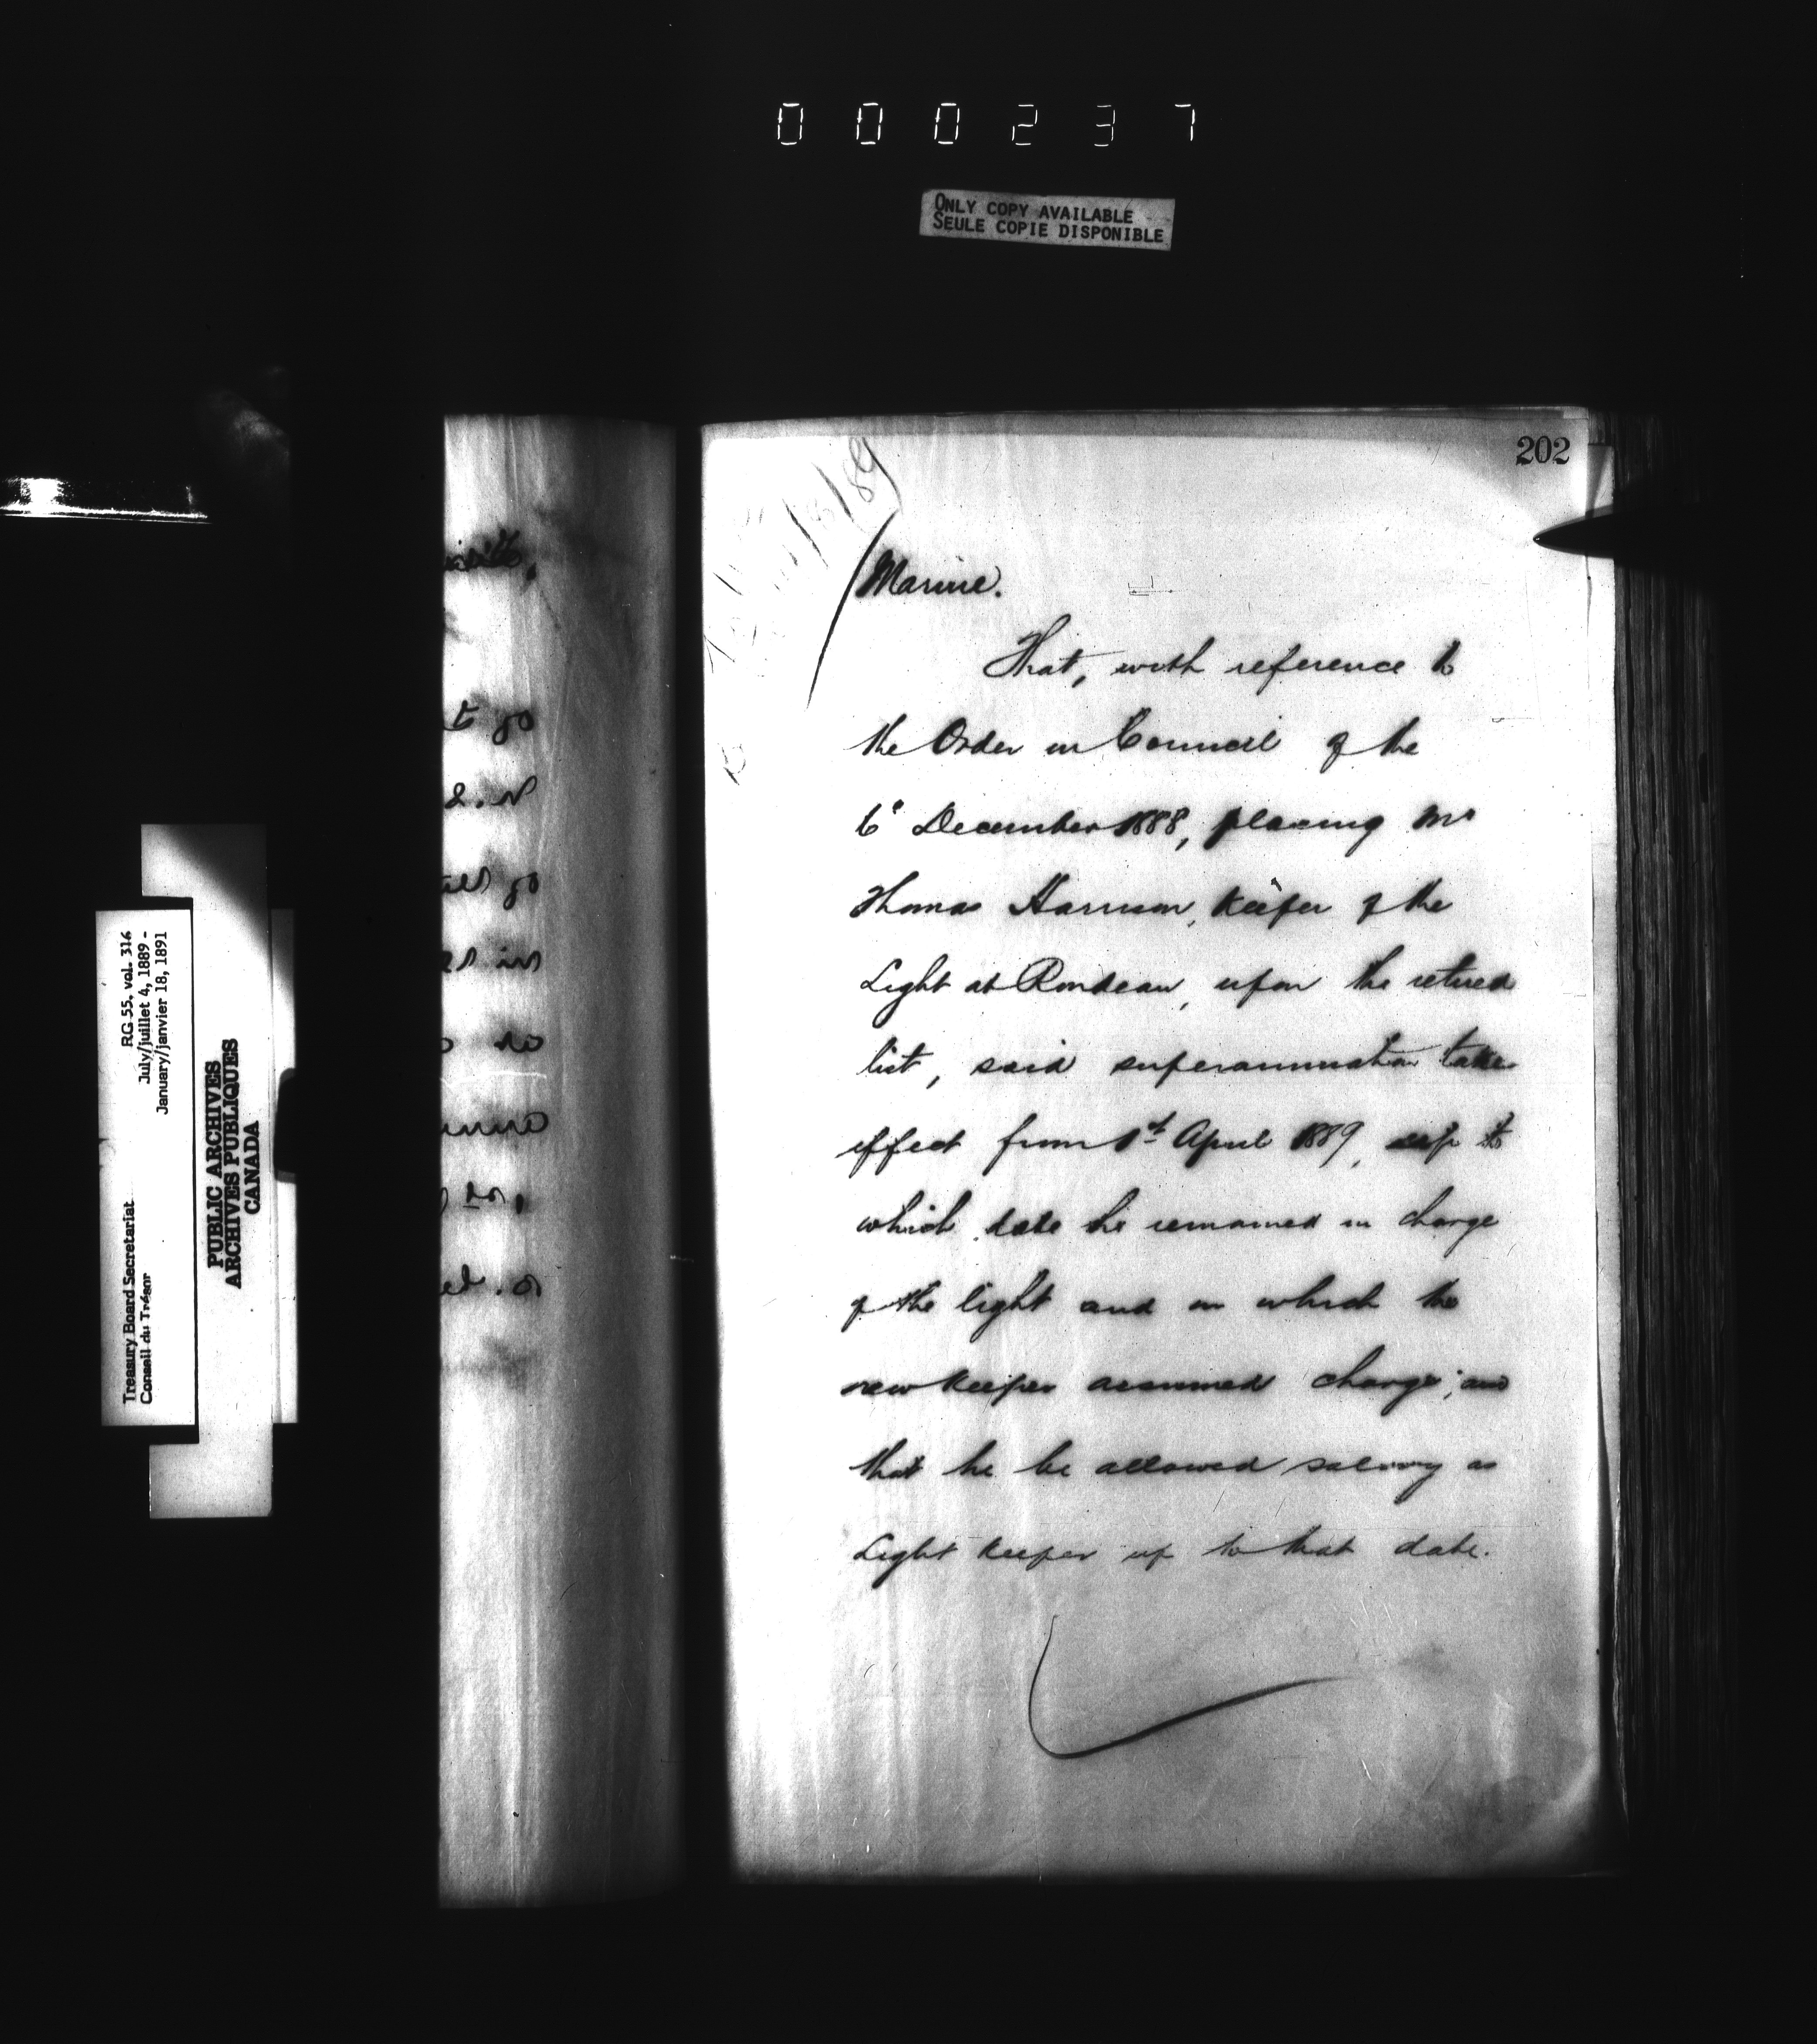 000237
ONLY COPY AVAILABLE
SEULE COPIE DISPONIBLE
202
89
Marine.
That, with reference to
the Order in Council of the
6° December 1888, placing Mr
Thomas Harrison, Keeper of the
Light at Rondeau, upon the retired
list, said superannuation take
effect from 1st April 1889, up to
which date he remained in charge
of the light and on which the
new keeper assumed charge; and
that he be allowed salary as
Light Keeper up to that date.
t go
go
in
Treasury Board Secretariat RG 55, vol. 316
Conseil du Trésor July/juillet 4, 1889 -
January/janvier 18, 1891
PUBLIC ARCHIVES
ARCHIVES PUBLIQUES
CANADA